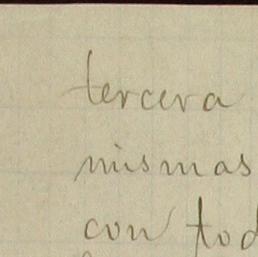 tercera
mismas
con tod